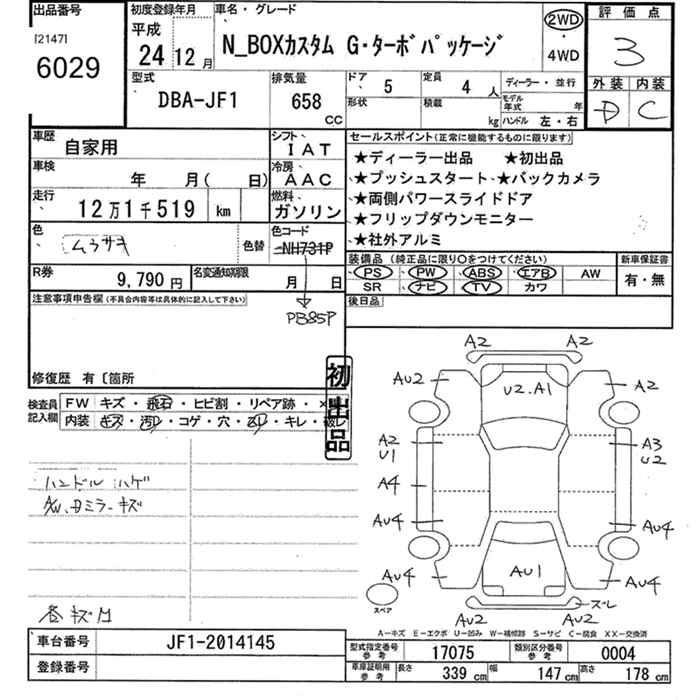 出品番号
[2147]
6029
初度登録年月
平成
24 12 月
車名・グレード
N_BOXカスタム G・ターボパッケージ
2WD
・
4WD
評価点
3
外装 内装
D C
型式
DBA-JF1
排気量
658
CC
ドア 5
形状
定員 4 人
積載 kg
ディーラー・並行
モデル年式 年
ハンドル 左・右
車歴
自家用
シフト
IAT
車検 年 月( 日)
冷房
AAC
走行
12万1千519 km
燃料
ガソリン
色
ムラサキ
色替
色コード
NH731P
PB85P
R券 9,790 円
名変通知期限 月 日
セールスポイント(正常に機能するものに限ります)
★ディーラー出品 ★初出品
★プッシュスタート、★バックカメラ
★両側パワースライドドア
★フリップダウンモニター
★社外アルミ
装備品(純正品に限り○をつけてください)
PS PW ABS エアB AW
SR ナビ TV カワ
新車保証書
有・無
後日品
注意事項申告欄(不具合内容等は具体的に記入して下さい)
修復歴 有〔箇所
初出品
検査員記入欄
FW キズ・飛石・ヒビ割・リペア跡・×
内装 キズ・汚レ・コゲ・穴・凹・キレ・破レ
ハンドルハゲ
A/W、Dミラーキズ
A2 A2
AU2 U2.A1 A2
A2 U1
A3 U2
A4
AU4 AU4
AU4 AU1 AU4
スペア
AU2 AU2 スレ
A−キズ E−エクボ U−凹み W−補修跡 S−サビ C−腐食 XX−交換済
車台番号 JF1-2014145
登録番号
型式指定番号 参考 17075
類別区分番号 参考 0004
車庫証明用 参考 長さ 339 cm 幅 147 cm 高さ 178 cm